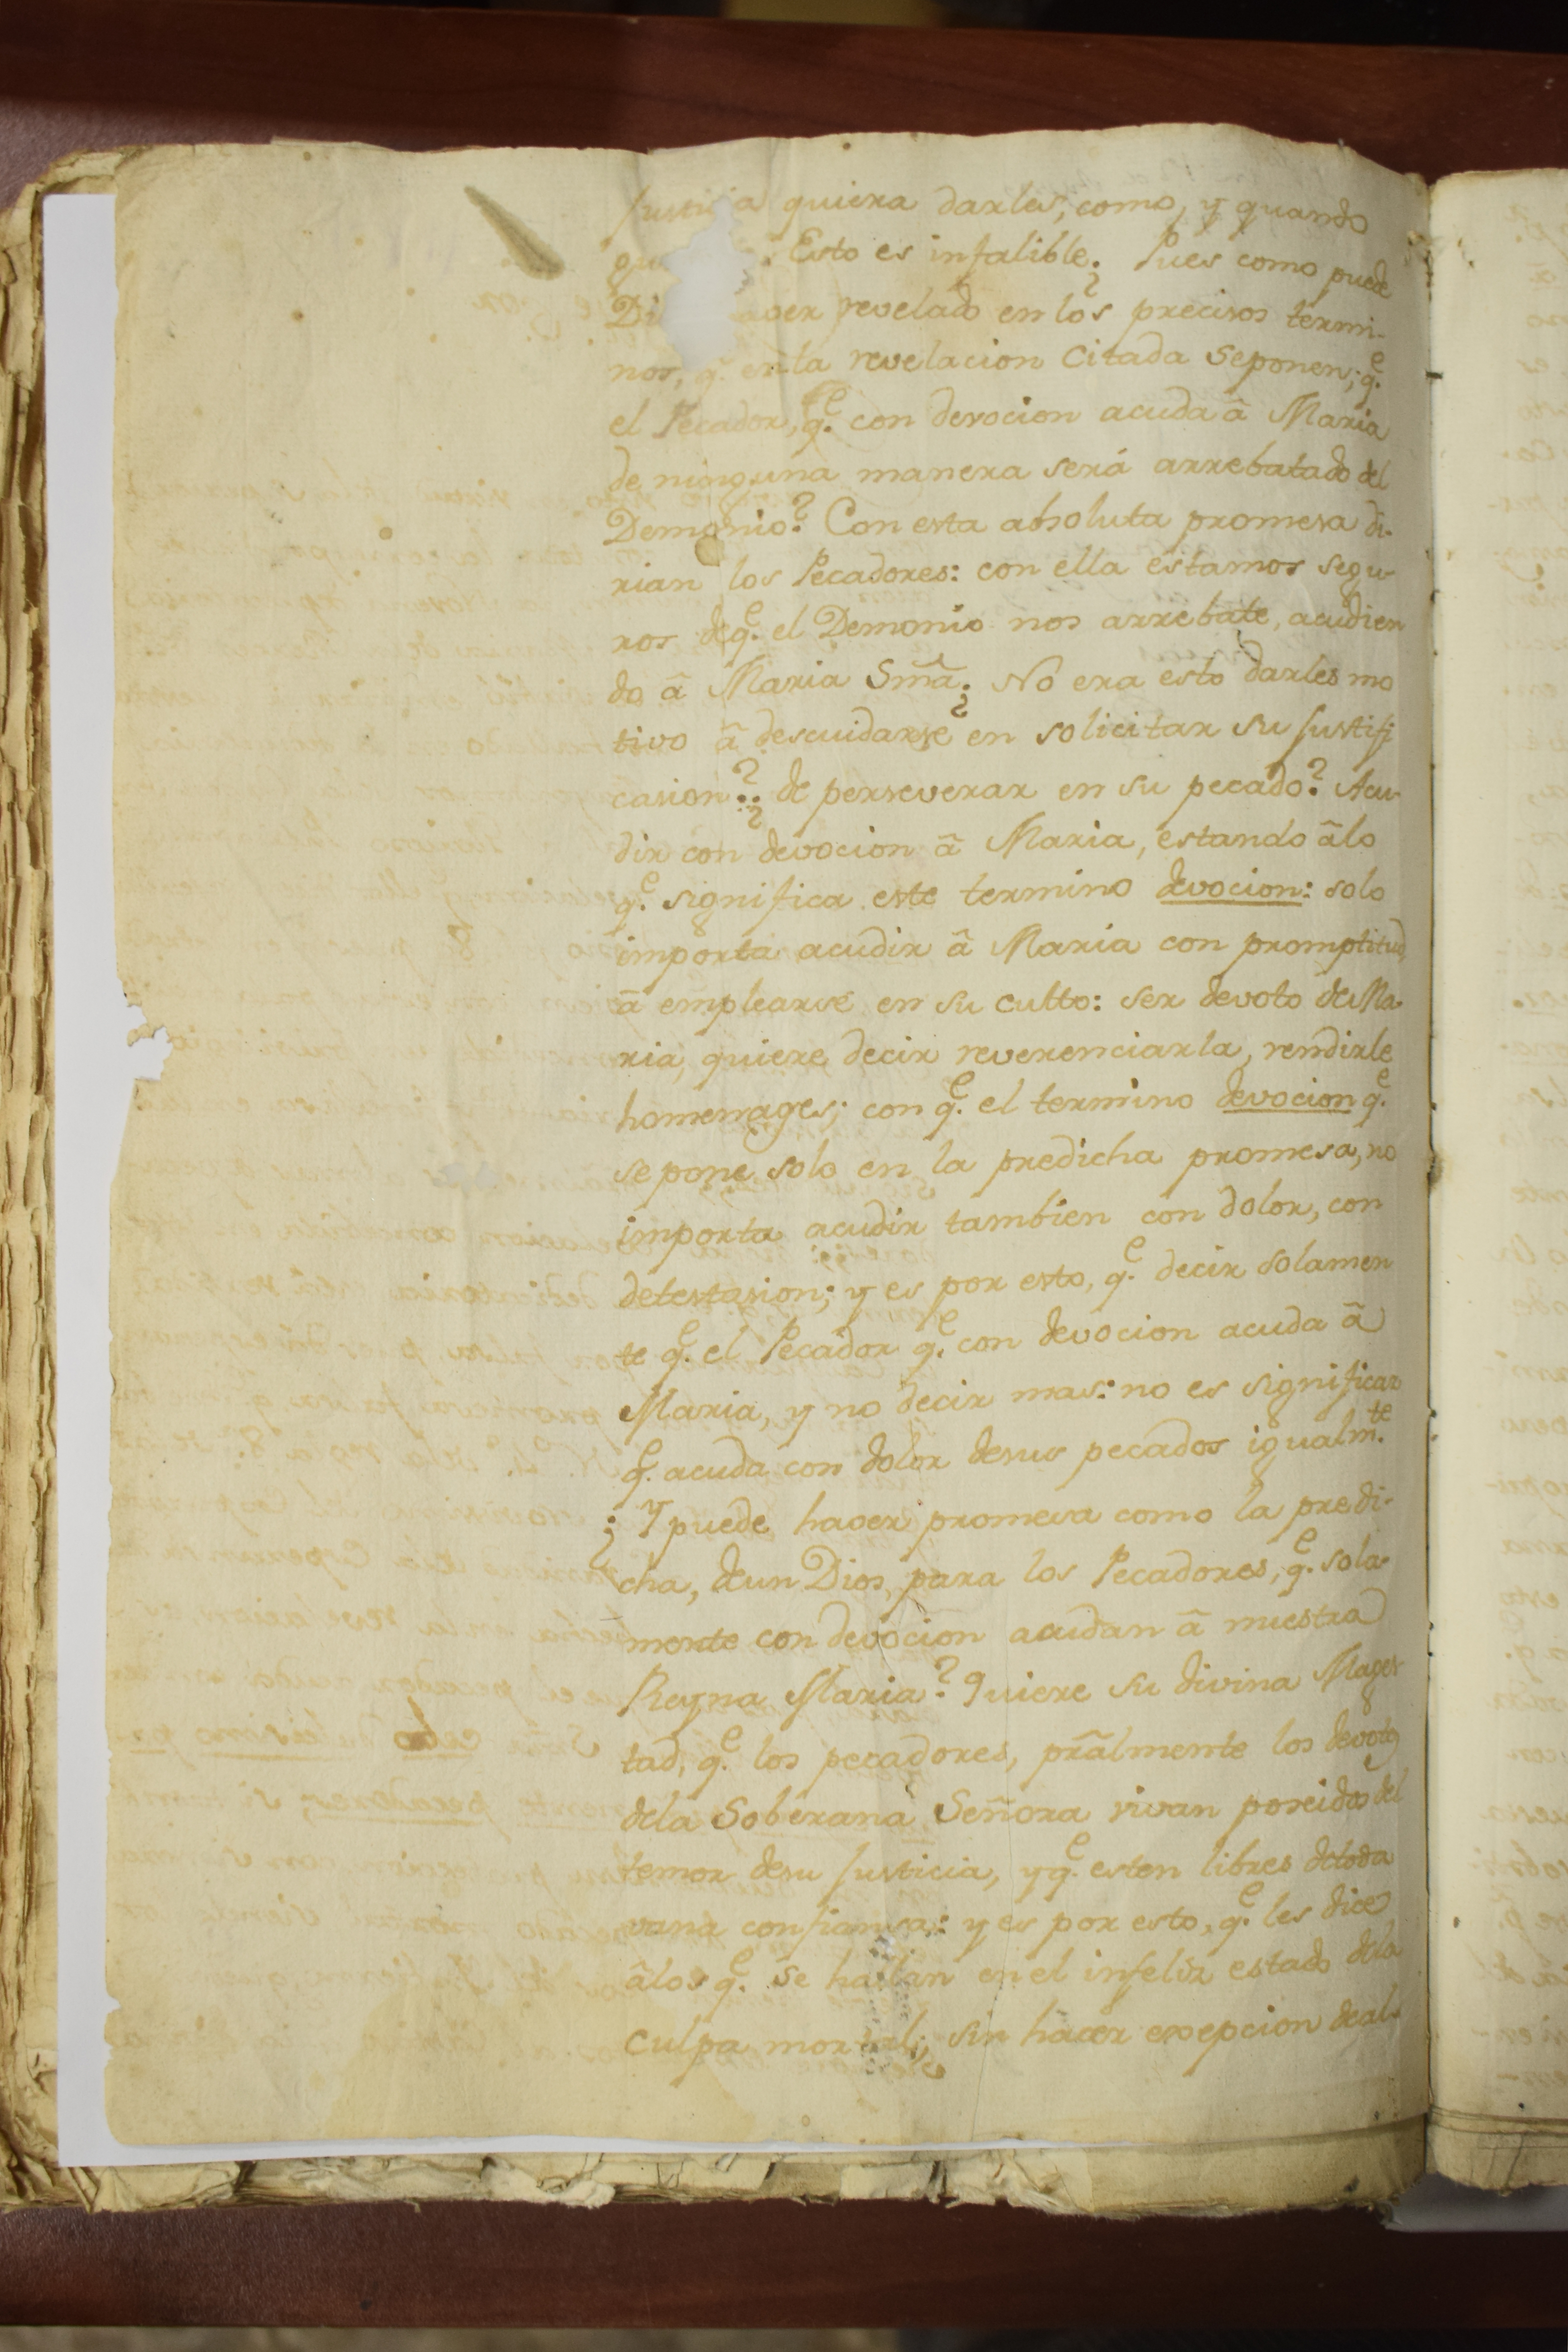 Justicia quiera darles, como, y quando
qu : Esto es infalible. ¿Pues como puede
Di aver revelado en los precisos termi-
nos, q.e en la revelacion Citada se ponen; q.e
el Pecador, q.e con devocion acuda â Maria
de ninguna manera será arrebatado del
Demonio? Con esta absoluta promesa di-
rian los Pecadores: con ella estamos segu-
ros de q.e el Demonio nos arrebate, acudien
do â Maria Sma. ¿No era esto darles mo
tivo â descuidarse en solicitar su Justifi
casion? ¿de perseverar en su pecado? Acu-
dir con devocion â Maria, estando âlo
q.e significa este termino devocion: solo
importa acudir â Maria con promptitud
â emplearse en su culto: ser devoto de Ma-
ria, quiere decir reverenciarla, rendirle
homenages; con q.e el termino devocion q.e
se pone solo en la predicha promesa, no
importa acudir tambien con dolor, con
detestasion; y es por esto, q.e decir solamen
te q.e el Pecador q.e con devocion acuda â
Maria, y no decir mas: no es significar
q.e acuda con dolor desus pecados igualm.te
¿Y puede haver promesa como la predi-
cha, deun Dios, para los Pecadores, q.e sola-
mente con devocion acudan â nuestra
Reyna Maria? Quiere su divina Mages
tad, q.e los pecadores, prãlmente los devotos
dela Soberana Señora vivan poseidos del
temor desu Justicia, y q.e esten libres detoda
vana confiansa: y es por esto, q.e les dice
âlos q.e se hallan en el infeliz estado dela
culpa mortal; sin hacer exepcion deal-